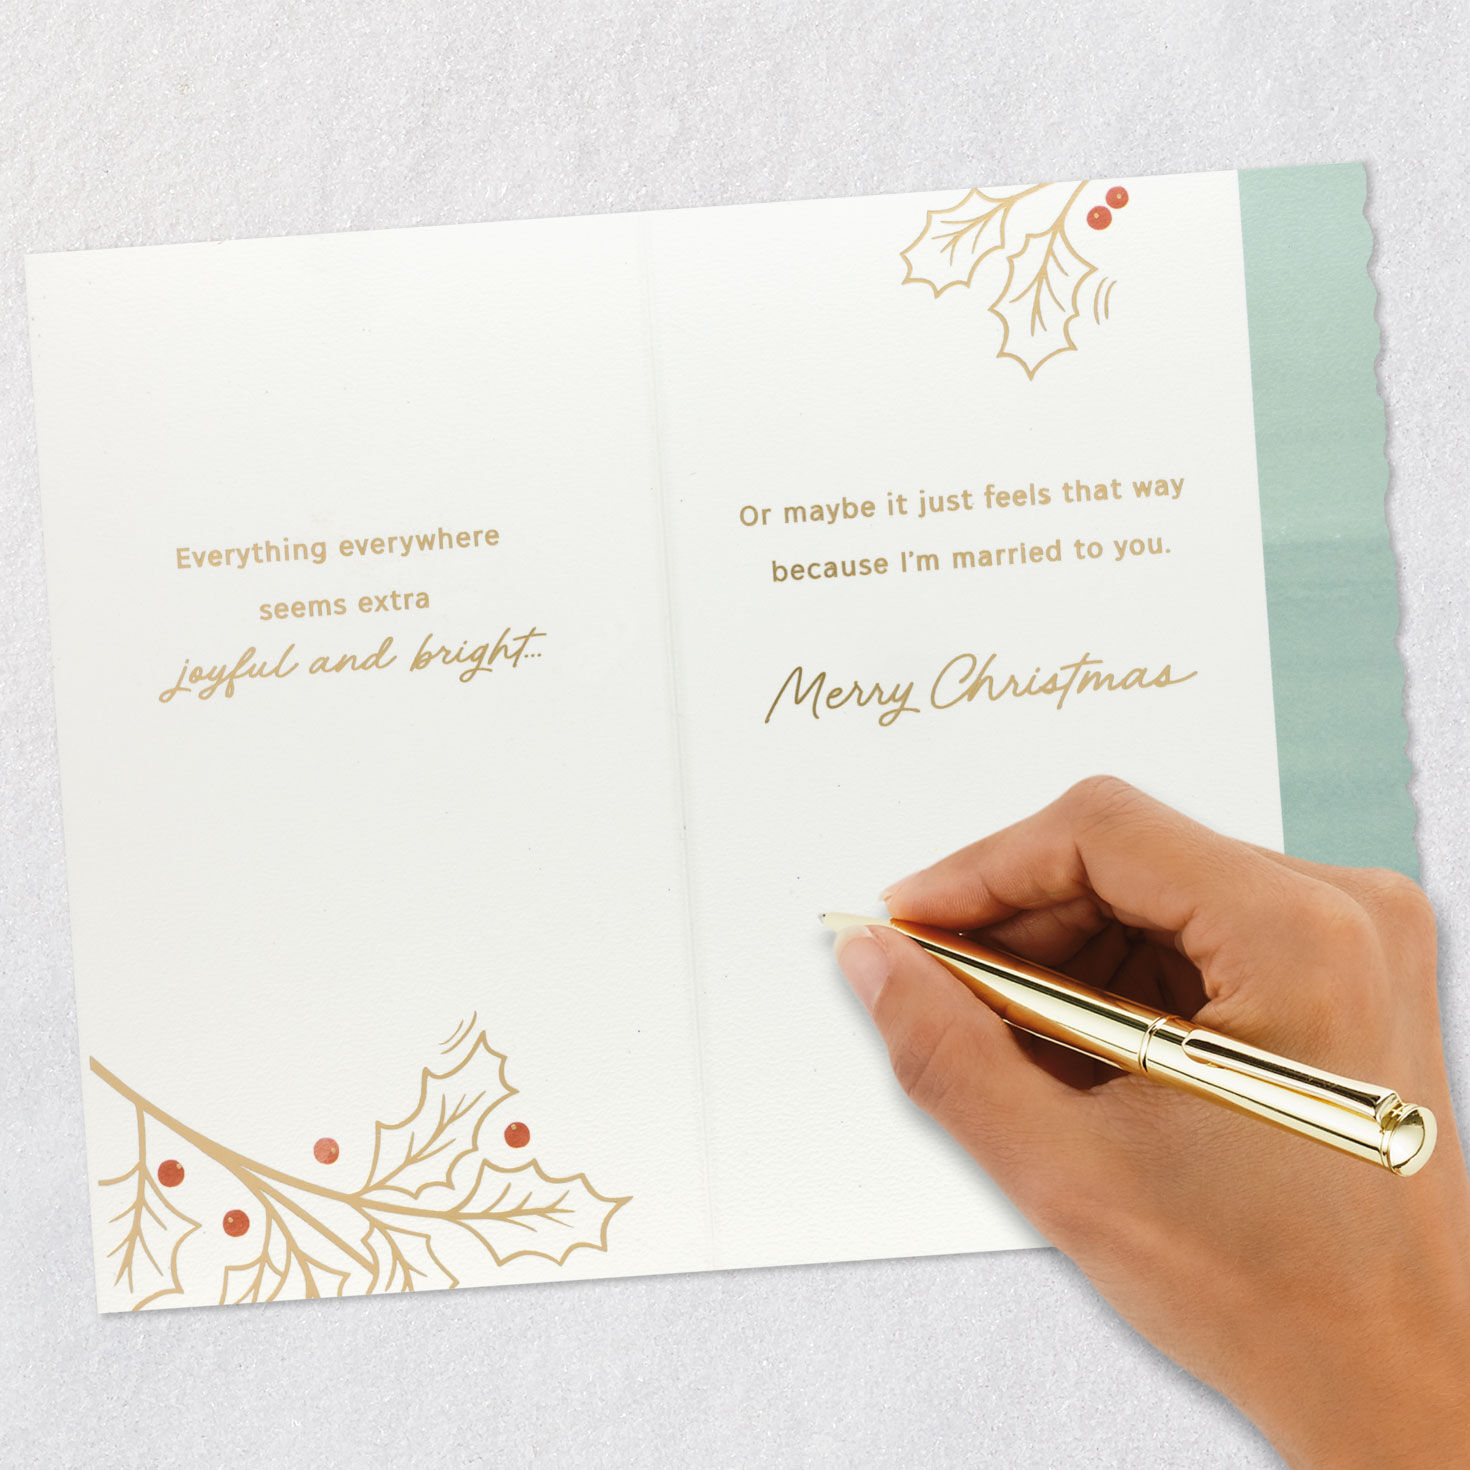 Everything everywhere
seems extra
joyful and bright...
Or maybe it just feels that way
because I'm married to you.
Merry Christmas